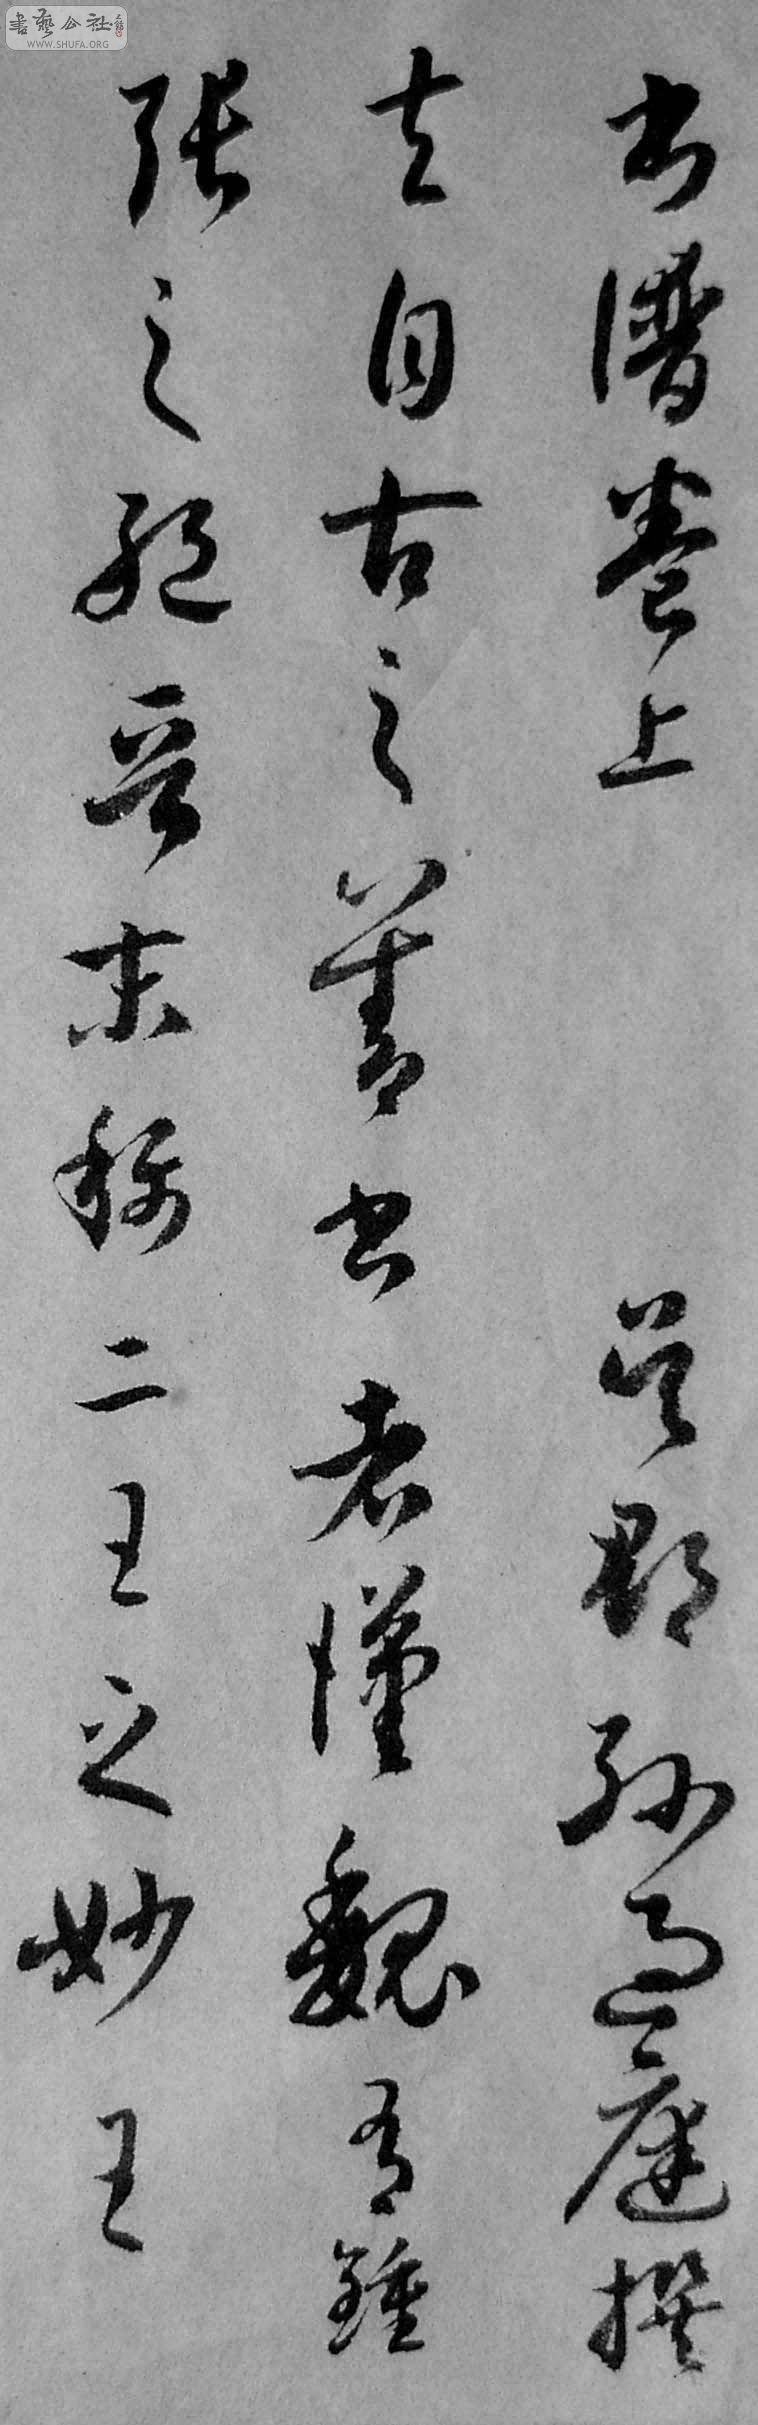 書譜卷上 吳郡孫過庭撰
夫自古之善書者漢魏有鍾
張之絕晉末稱二王之妙王
書藝公社
WWW.SHUFA.ORG